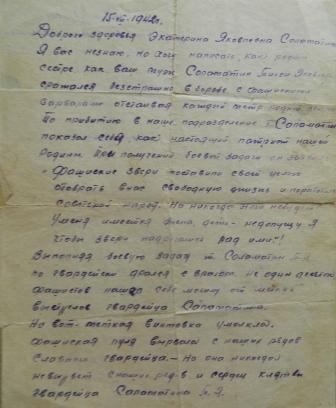 15-VII-1942г.
Доброго здоровья Екатерина Яковлевна Соломатина
Я вас незнаю, но хочу написать, как родной
сестре, как ваш муж, Соломатин
сражался безстрашно в борьбе с фашистскими
варварами отстаивая каждый метр родной
По прибытию в наше подразделение т. Соломатин
показал себя, как настоящий патриот нашей
Родины. При получении боевой задачи он
Фашистские звери поставили своей целью
отобрать у нас свободную жизнь и
советский народ. Но никогда этого небудет
Уменя имеется жена, дети - недопущу я
чтобы звери над ими."!
Выполняя боевую задачу т. Соломатин
по гвардейски дрался с врагом. Не один десяток
фашистов нашли себе могилу от метких
выстрелов гвардейца Соломатина.
Но вот- меткая винтовка умолкла.
фашистская пуля вырвала с наших рядов
славного гвардейца. - Но она никогда
невырвет с наших рядов и сердец
гвардейца Соломатина